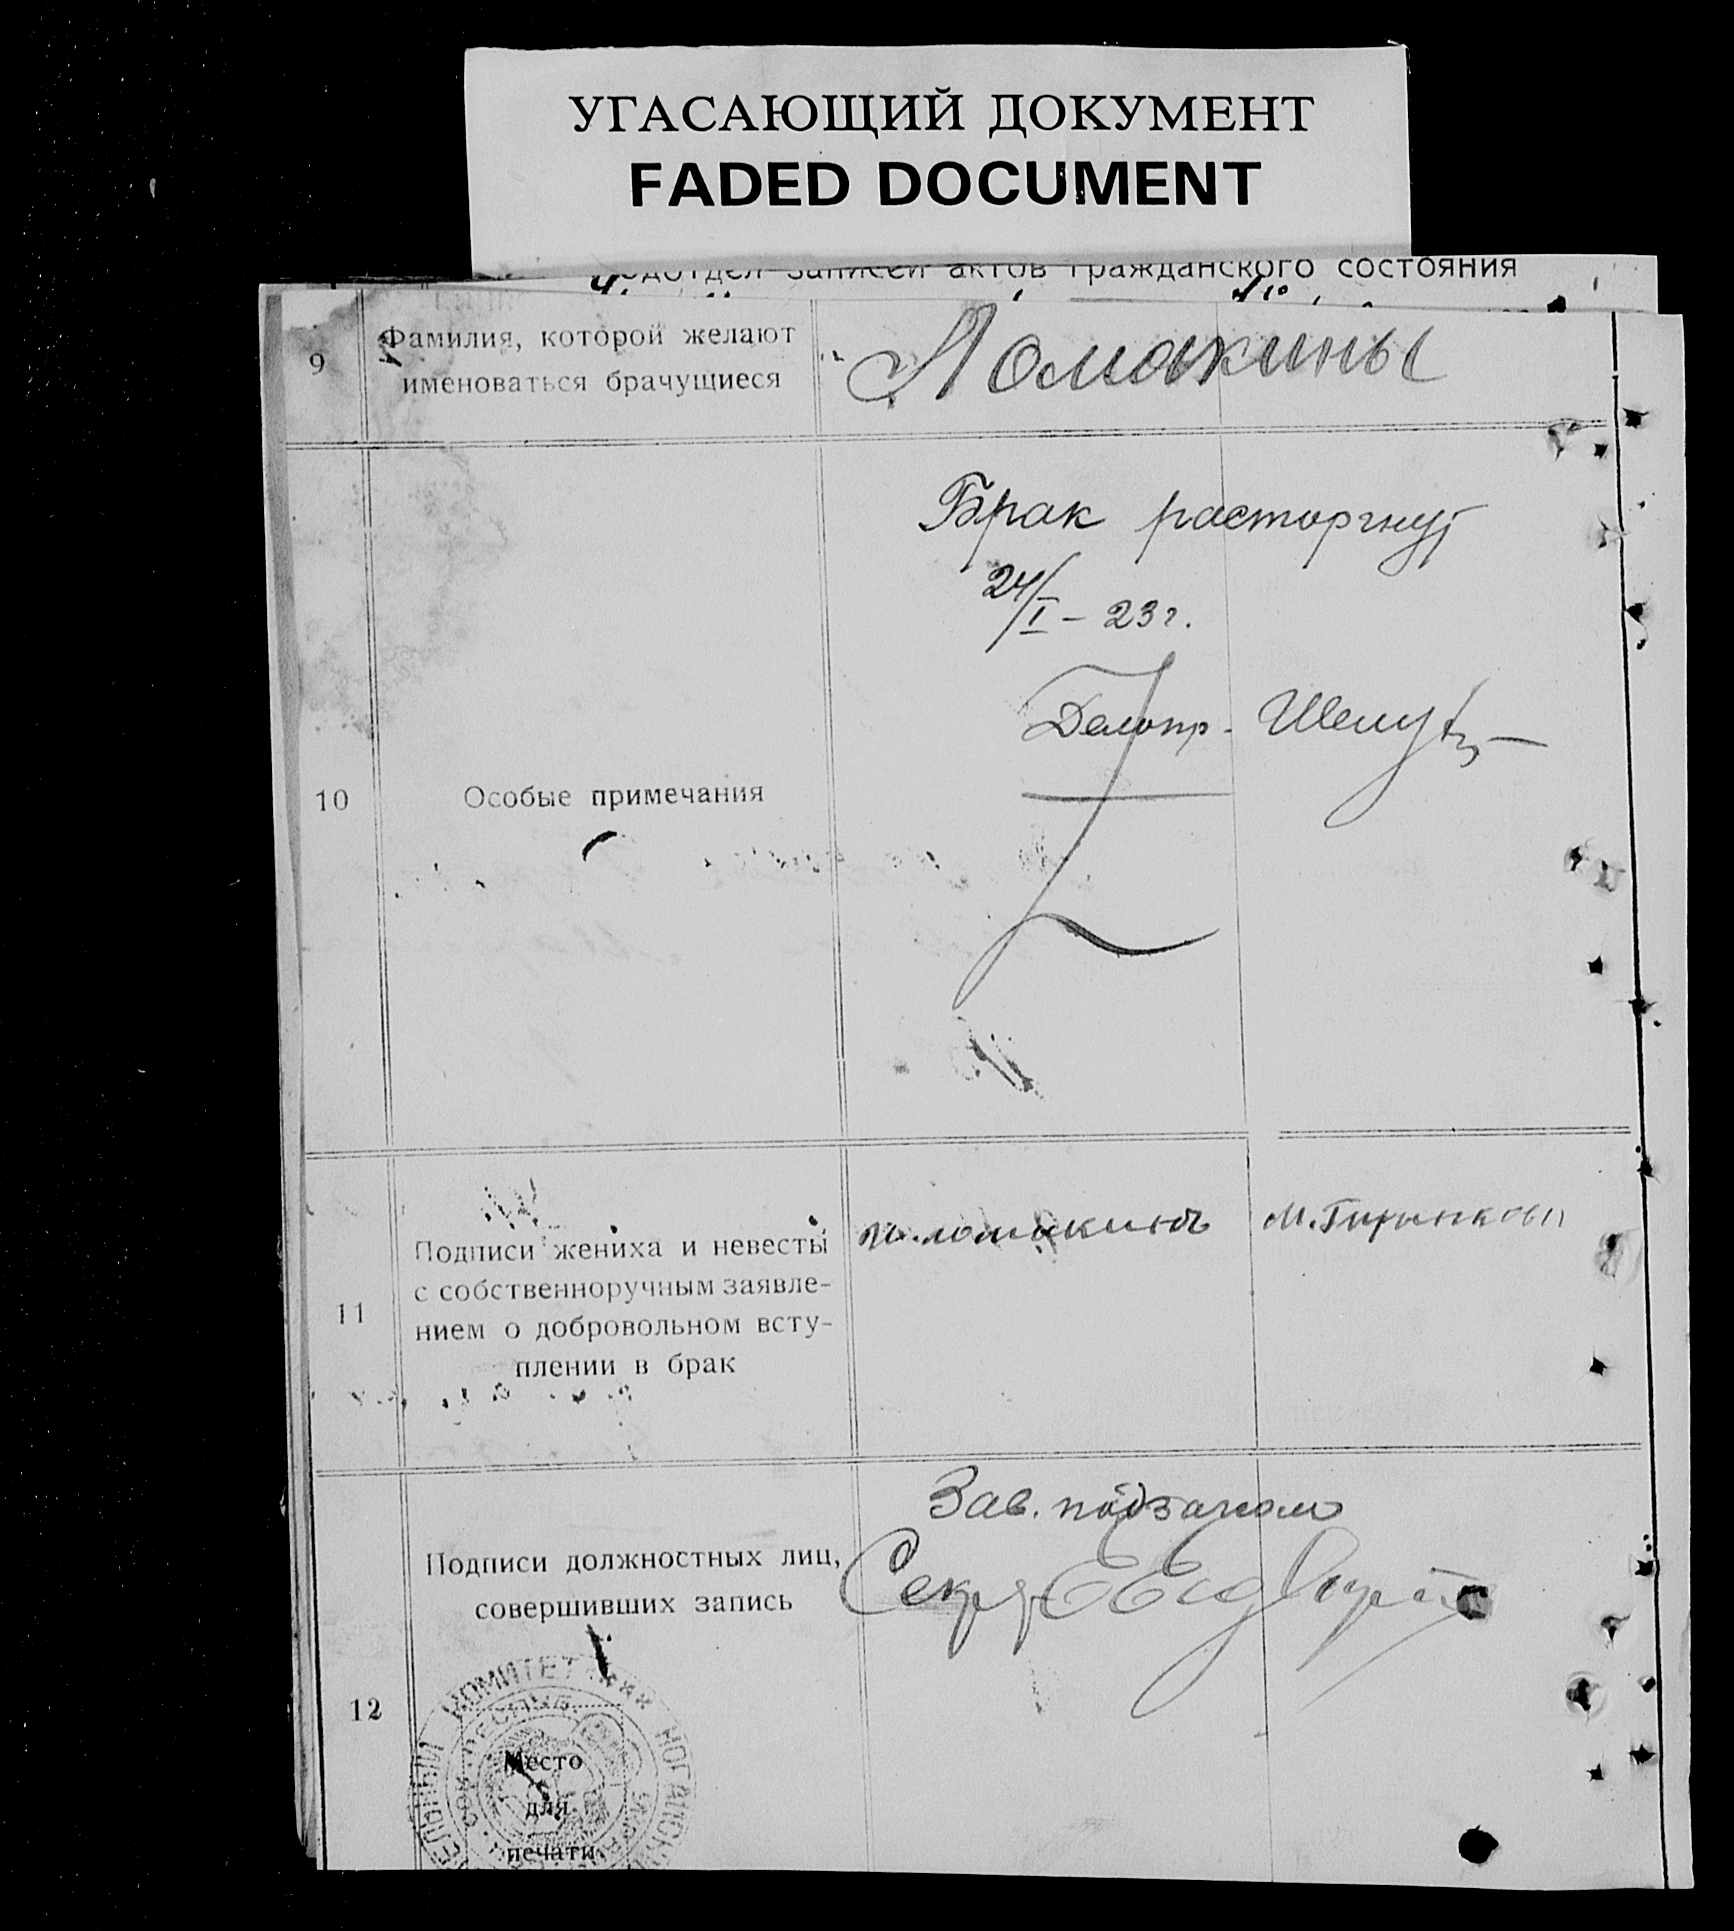 УГАСАЮЩИЙ ДОКУМЕНТ
FADED DOCUMENT
подотдел записей актов гражданского состояния
9
Фамилия, которой желают
именоваться брачущиеся
Ломакины
10
Особые примечания
Брак расторгнут
24/I – 23 г.
Делопр.
11
Подписи жениха и невесты
с собственноручным заявле-
нием о добровольном всту-
плении в брак
Ломакинъ
М.
12
Подписи должностных лиц,
совершивших запись
Зав. подзагсом
Секр
КОМИТЕТ
Место
для
печати